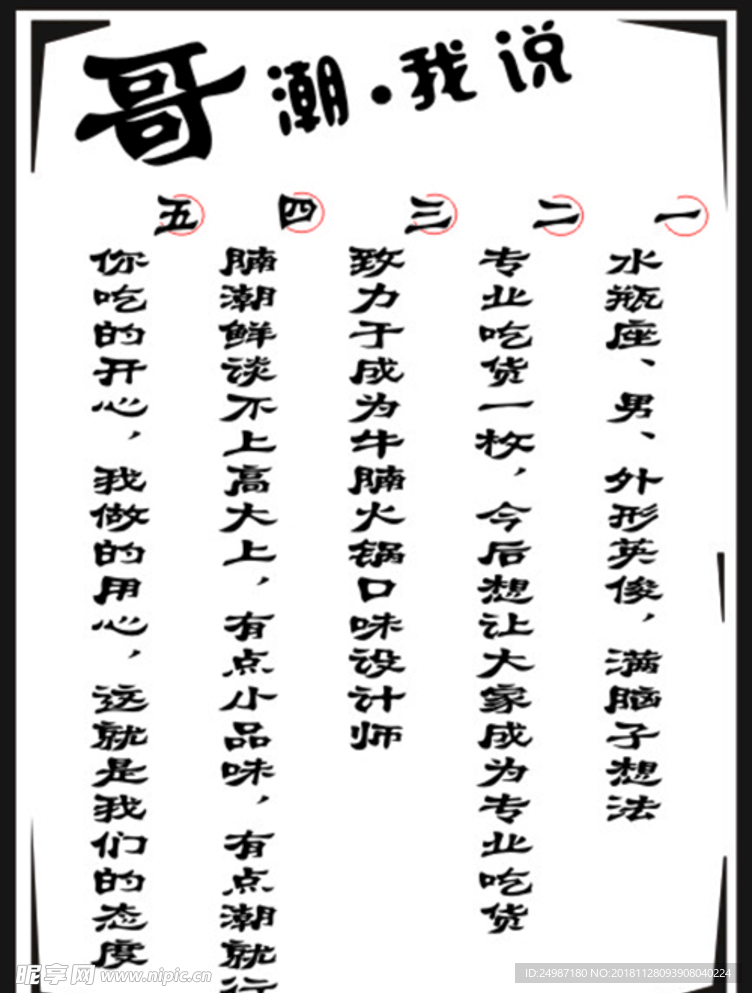 哥潮·我说
一
水瓶座、男、外形英俊，满脑子想法
二
专业吃货一枚，今后想让大家成为专业吃货
三
致力于成为牛腩火锅口味设计师
四
腩潮鲜谈不上高大上，有点小品味，有点潮就行
五
你吃的开心，我做的用心，这就是我们的态度
昵享网 www.nipic.cn
ID:24987180 NO:20181128093908040224